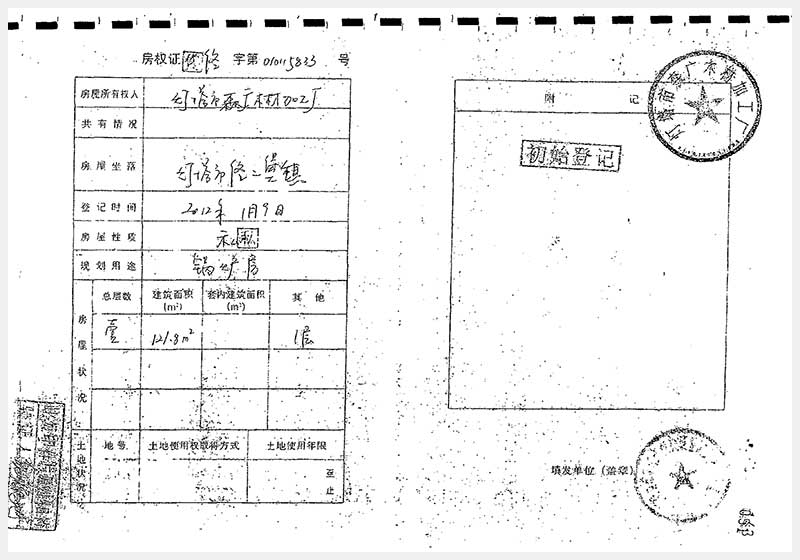 房权证 佟 字第 010115833 号
房屋所有权人 灯塔市磊广木材加工厂
共有情况
房屋坐落 灯塔市佟二堡镇
登记时间 2012年1月9日
房屋性质 私
规划用途 锅炉房
房屋状况 总层数 建筑面积(m²) 套内建筑面积(m²) 其他
壹 121.8m² 1层
土地状况 地号 土地使用权取得方式 土地使用年限
至
止
附 记
初始登记
木材加工厂
填发单位（盖章）